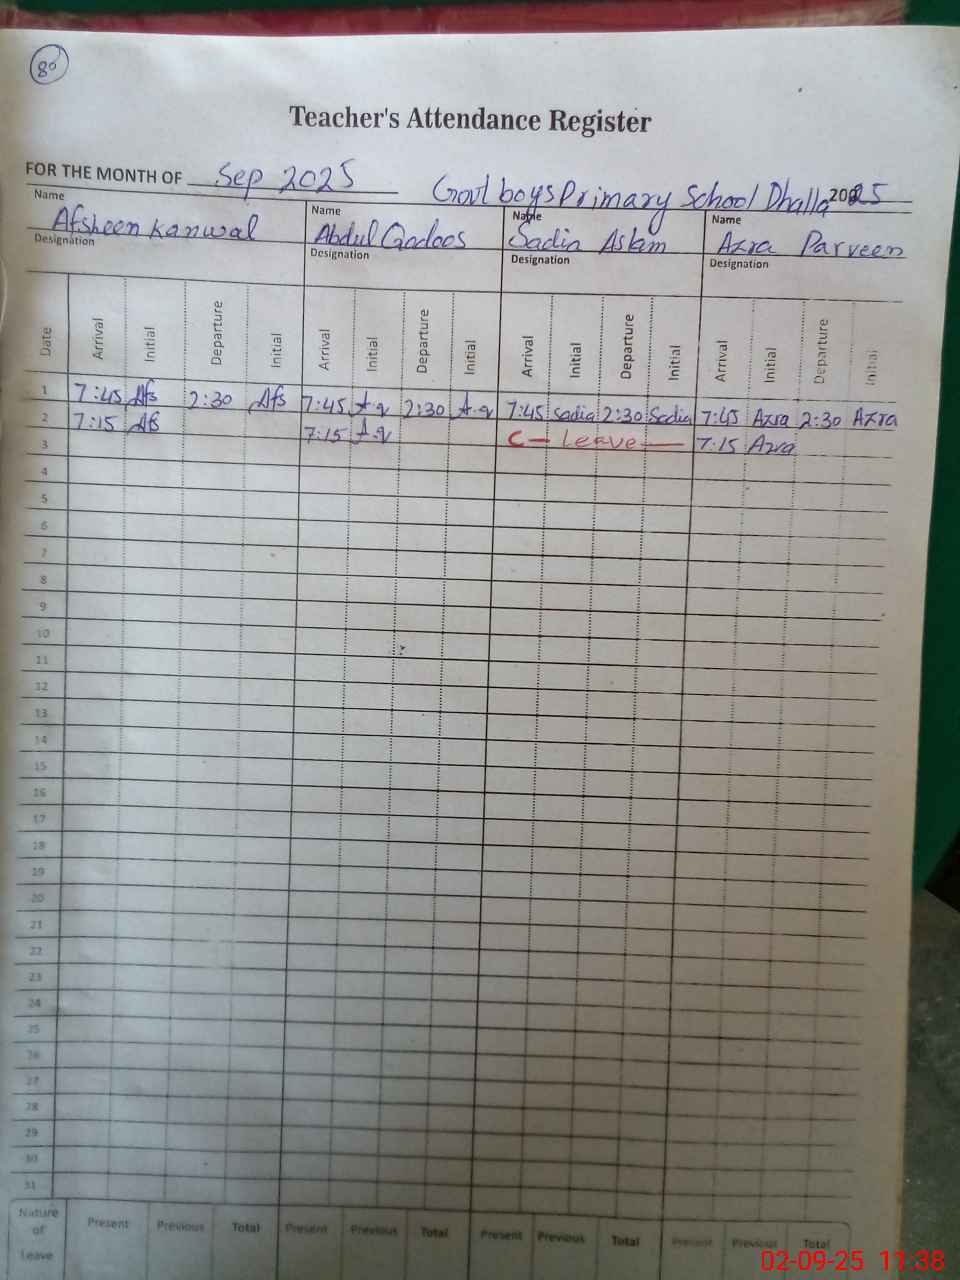 80
Teacher's Attendance Register
FOR THE MONTH OF Sep 2025 Govt boys Primary School Dhalla 2025
Name Name Name Name
Afsheen Kanwal Abdul Qadoos Sadia Aslam Azra Parveen
Designation Designation Designation Designation
Date Arrival Initial Departure Initial Arrival Initial Departure Initial Arrival Initial Departure Initial Arrival Initial Departure Initial
1 7:45 Afs 2:30 Afs 7:45 A.q 2:30 A.q 7:45 Sadia 2:30 Sadia 7:45 Azra 2:30 Azra
2 7:15 Afs 7:15 A.q C - Leave - 7:15 Azra
3
4
5
6
7
8
9
10
11
12
13
14
15
16
17
18
19
20
21
22
23
24
25
26
27
28
29
30
31
Nature of Leave Present Previous Total Present Previous Total Present Previous Total Present Previous Total
02-09-25 11:38